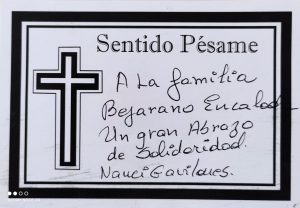 Sentido Pésame
A La familia
Bejarano Encalada
Un gran Abrazo
de Solidaridad.
Nanci Gavilanes.